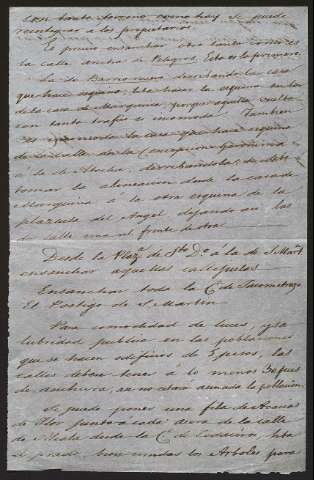 con tanto terreno como hay se puede
reintegrar a los propietarios.
Es preciso ensanchar otro tanto como es
la calle ancha de Peligros. Esta es la primera
la de Barrionuevo derribando la casa
que hace esquina
de la casa de Marquina, porque aquella vuelta
con tanto trafico es incomoda. Tambien
es la casa que hace esquina
de la calle de la Concepcion Geronima
á la de Atocha, derribandola; debe
tomar la alineacion desde la casa de
Marquina á la otra esquina de la
plazuela del Angel dejando en las
calle una al frente de otra.
Desde la Plazª de Stº Dº a la de S. Martⁿ
ensanchar aquellas callejuelas
Ensanchar toda la Cº de Jacometrezo
El Postigo de S. Martin.
Para comodidad de luces, y sa
lubridad publica en las poblaciones
que se hacen edificios de 5 pisos, las
calles deben tener á lo menos 30 pies
de anchura, sino estará ahogada la poblacion.
Se puede poner una fila de Acacias
de flor junto a cada acera de la calle
de Alcala desde la Cº de Cedaceros, hta
el prado, bien unidos los Arboles para